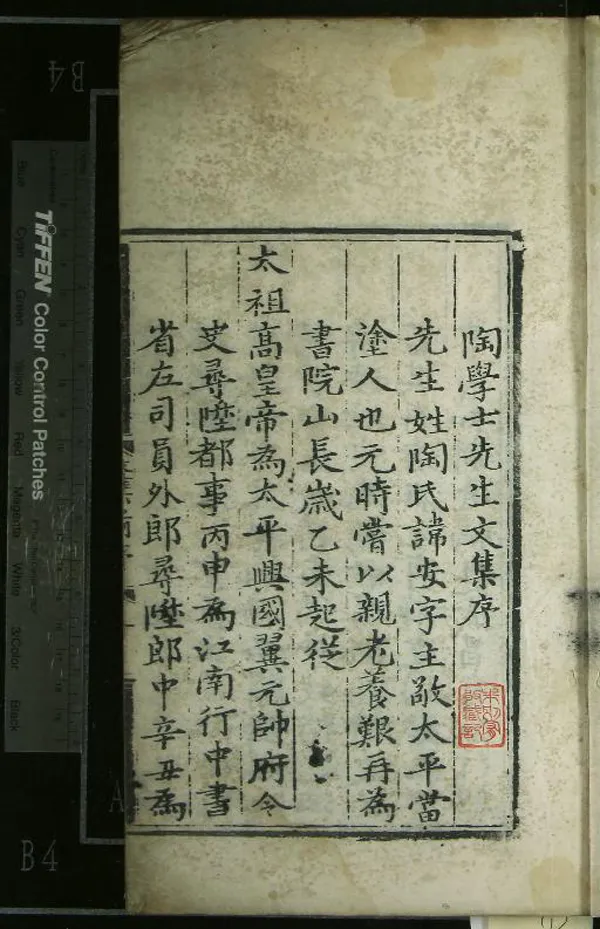 陶學士先生文集序
先生姓陶氏諱安字主敬太平當
塗人也元時嘗以親老養艱再為
書院山長歳乙未起從
太祖高皇帝為太平興國翼元帥府令
史尋陞都事丙申為江南行中書
省左司員外郎尋陞郎中辛丑為
B4
TIFFEN Color Control Patches
Blue Cyan Green Yellow Red Magenta White 3/Color Black
B4